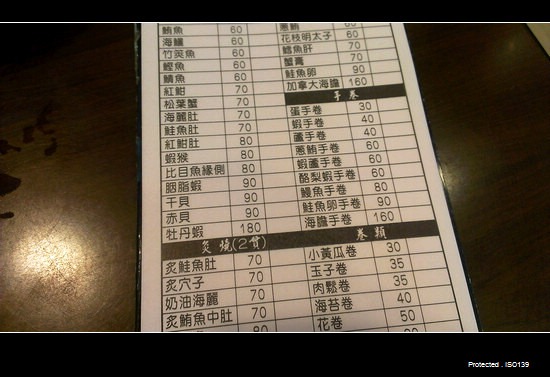 鮪魚 60
海鱺 60
竹筴魚 60
鰹魚 60
鯖魚 60
紅魽 70
松葉蟹 70
海麗肚 70
鮭魚肚 70
紅魽肚 80
蝦猴 80
比目魚緣側 80
胭脂蝦 90
干貝 90
赤貝 90
牡丹蝦 180
炙燒(2貫)
炙鮭魚肚 70
炙穴子 70
奶油海麗 70
炙鮪魚中肚 70
80
蔥鮪 60
花枝明太子 60
鱈魚肝 70
蟹膏 70
鮭魚卵 90
加拿大海膽 160
手卷
蛋手卷 30
蝦手卷 40
蘆手卷 40
蔥鮪手卷 60
蝦蘆手卷 60
酪梨蝦手卷 60
鰻魚手卷 80
鮭魚卵手卷 90
海膽手卷 160
卷類
小黃瓜卷 30
玉子卷 35
肉鬆卷 35
海苔卷 40
花卷 50
90
Protected . ISO139